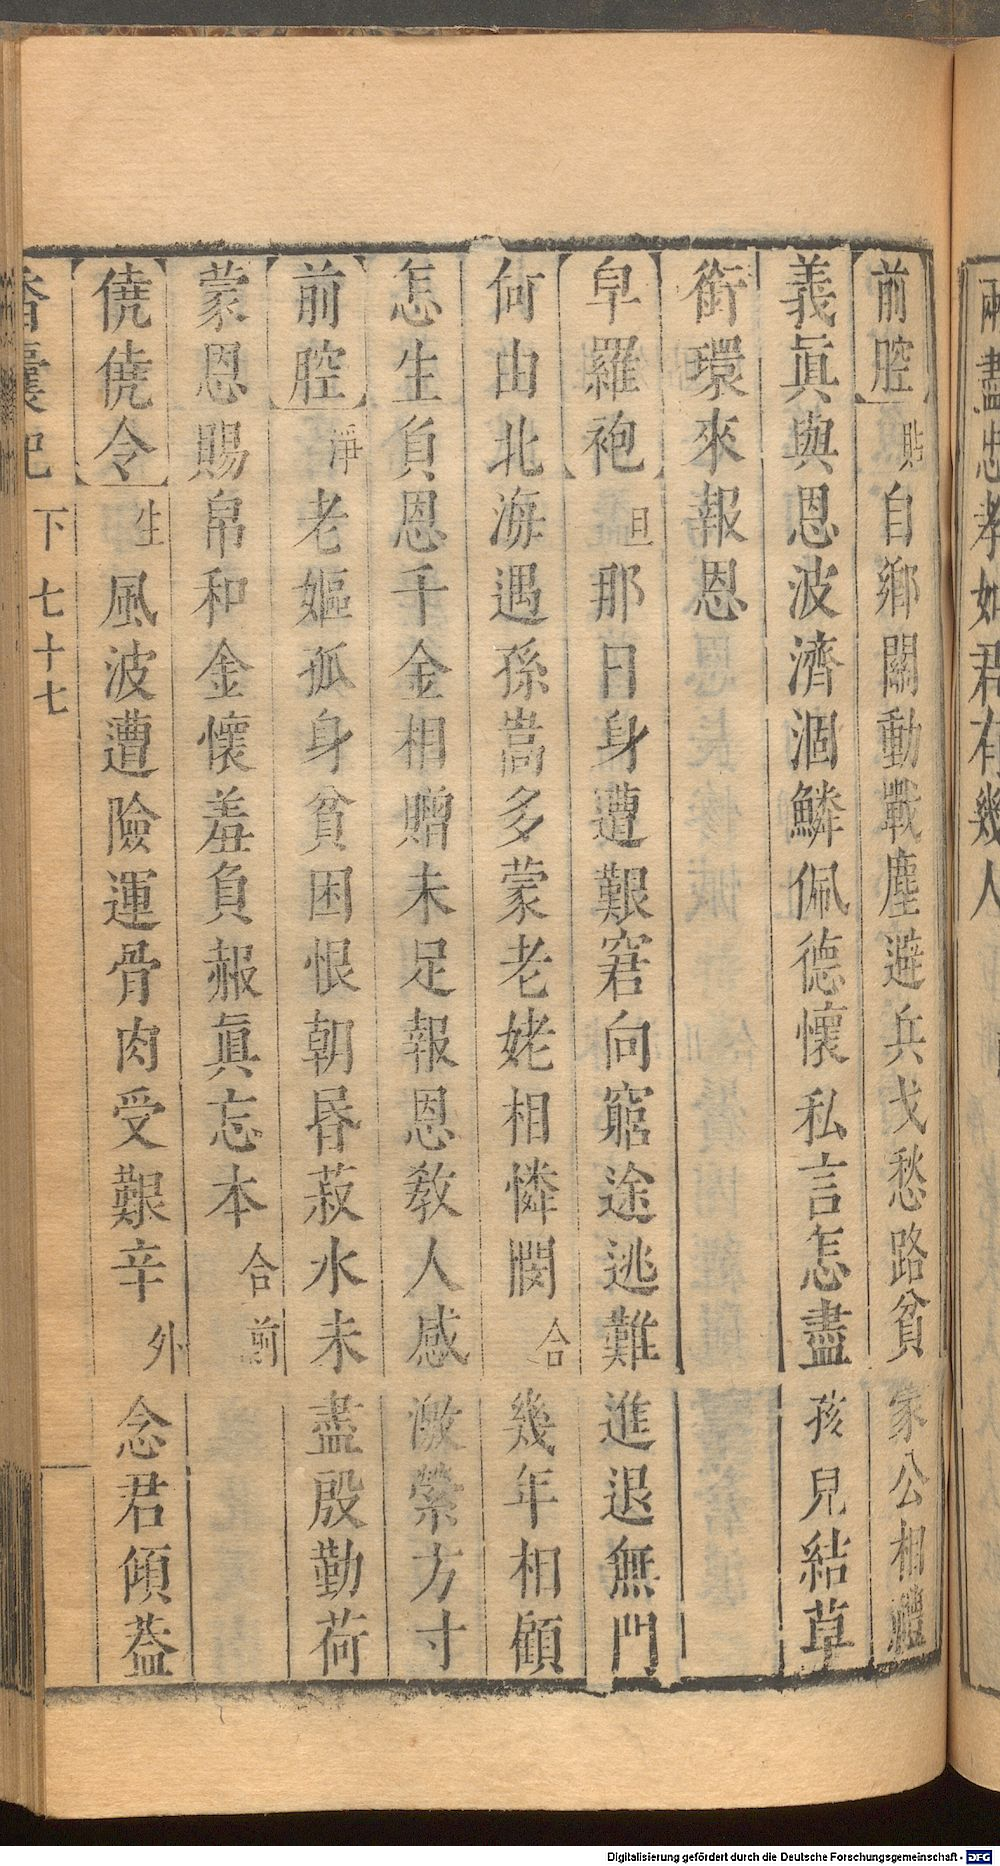 兩盡忠孝如君有幾人
前腔貼自鄉關動戰塵避兵戈愁路貧家公相禮
義眞與恩波濟涸鱗佩德懷私言怎盡孩兒結草
銜環來報恩
皁羅袍旦那日身遭艱窘向窮途逃難進退無門
何由北海遇孫嵩多蒙老姥相憐憫合幾年相顧
怎生負恩千金相贈未足報恩敎人感激縈方寸
前腔淨老嫗孤身貧困恨朝昏菽水未盡殷勤荷
蒙恩賜帛和金懷羞負赧眞忘本合前
僥僥令生風波遭險運骨肉受艱辛外念君傾葢
香囊記 下 七十七
Digitalisierung gefördert durch die Deutsche Forschungsgemeinschaft - DFG